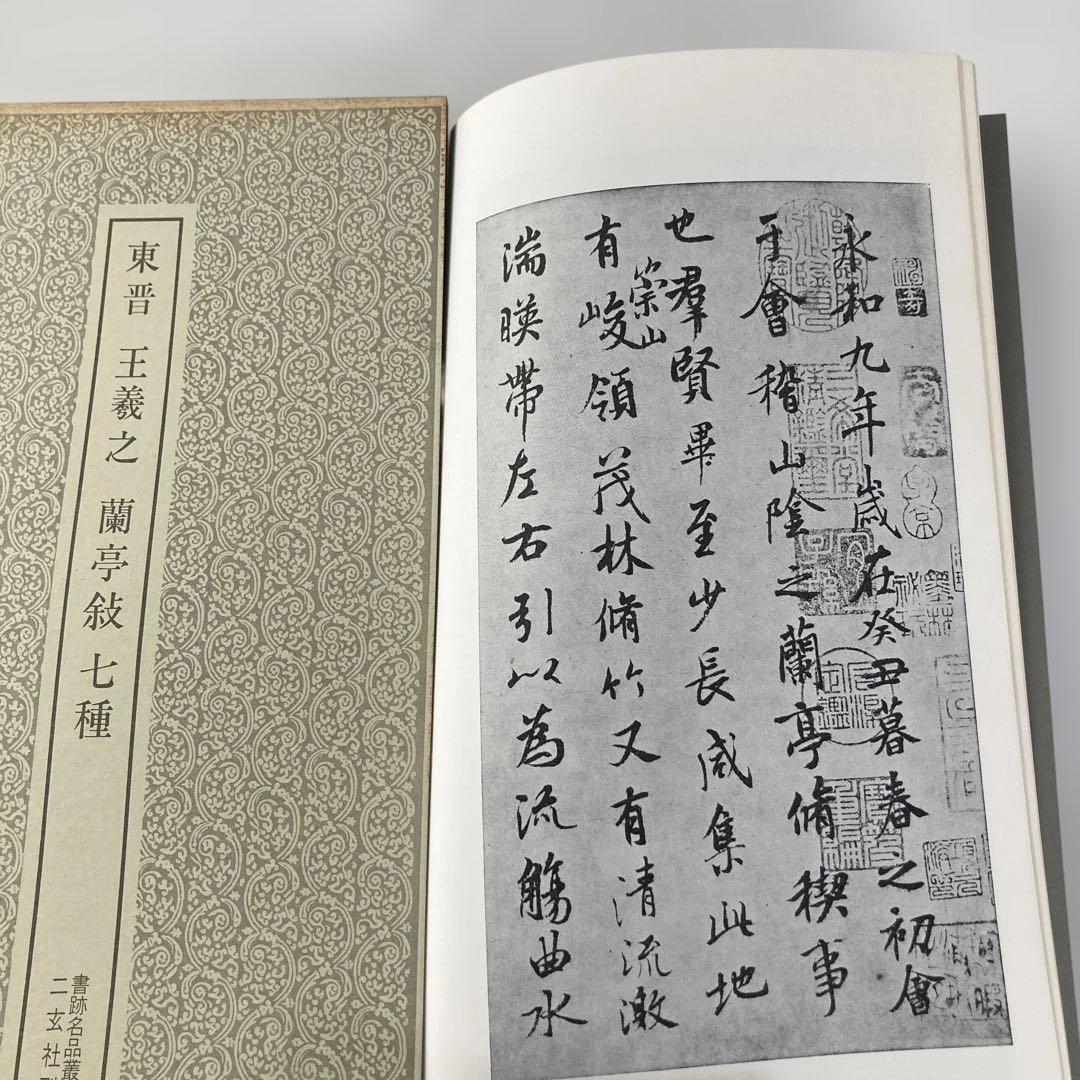 東晋 王羲之 蘭亭敍 七種
書跡名品叢
二玄社
永和九年歳在癸丑暮春之初會
于會稽山陰之蘭亭脩稧事
也羣賢畢至少長咸集此地
有崇山峻領茂林脩竹又有清流激
湍暎帶左右引以為流觴曲水